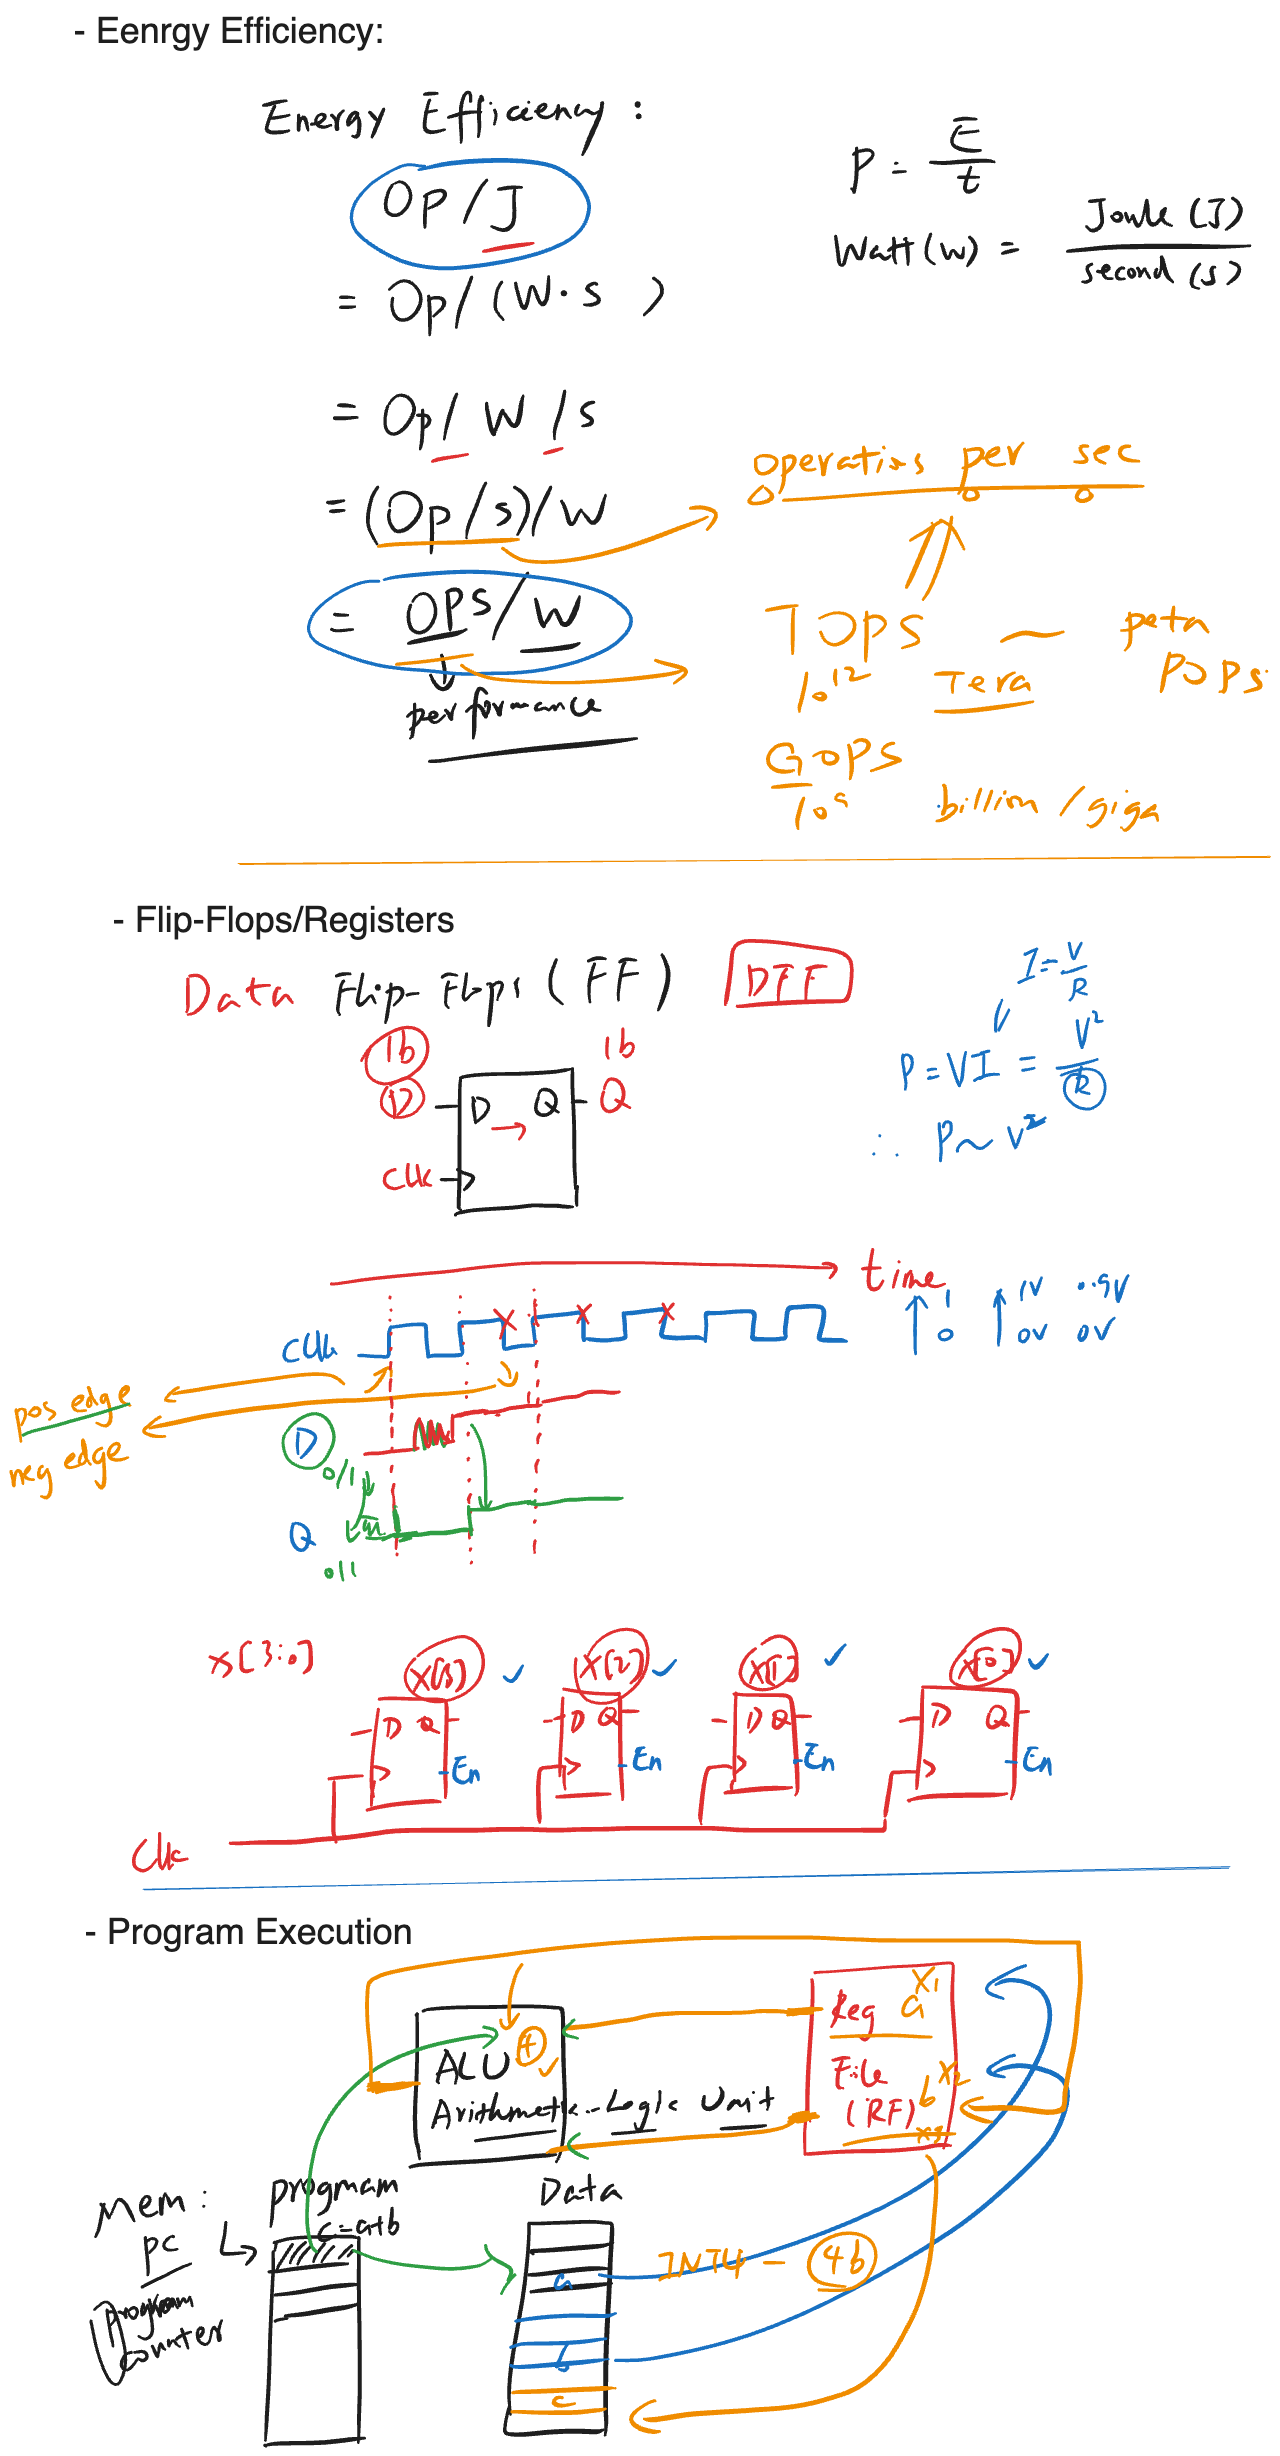 - Eenrgy Efficiency:
Energy Efficiency :
OP/J
= Op/(W·s )
= Op/ W /s
= (Op/s)/W
= OPS/W
performance
P = E/t
Watt(W) = Joule (J)
second (s)
operations per sec
TOPS ~ peta
10^12 Tera POPS
GOPS
10^9 billion/giga
- Flip-Flops/Registers
Data Flip-Flops (FF) DFF
I = V/R
P = VI = V²/R
∴ P ~ V²
1b 1b
D D Q Q
Clk
time
Clk
1 1V 0.9V
0 0V 0V
pos edge
neg edge
D
0/1
Q
0/1
X[3:0] X[3] X[2] X[1] X[0]
D Q D Q D Q D Q
En En En En
Clk
- Program Execution
ALU +
Arithmetic-Logic Unit
Reg a X1
File b X2
(RF) X3
Mem: program Data
c=a+b
PC
program
counter
INT4 - 4b
a
b
c